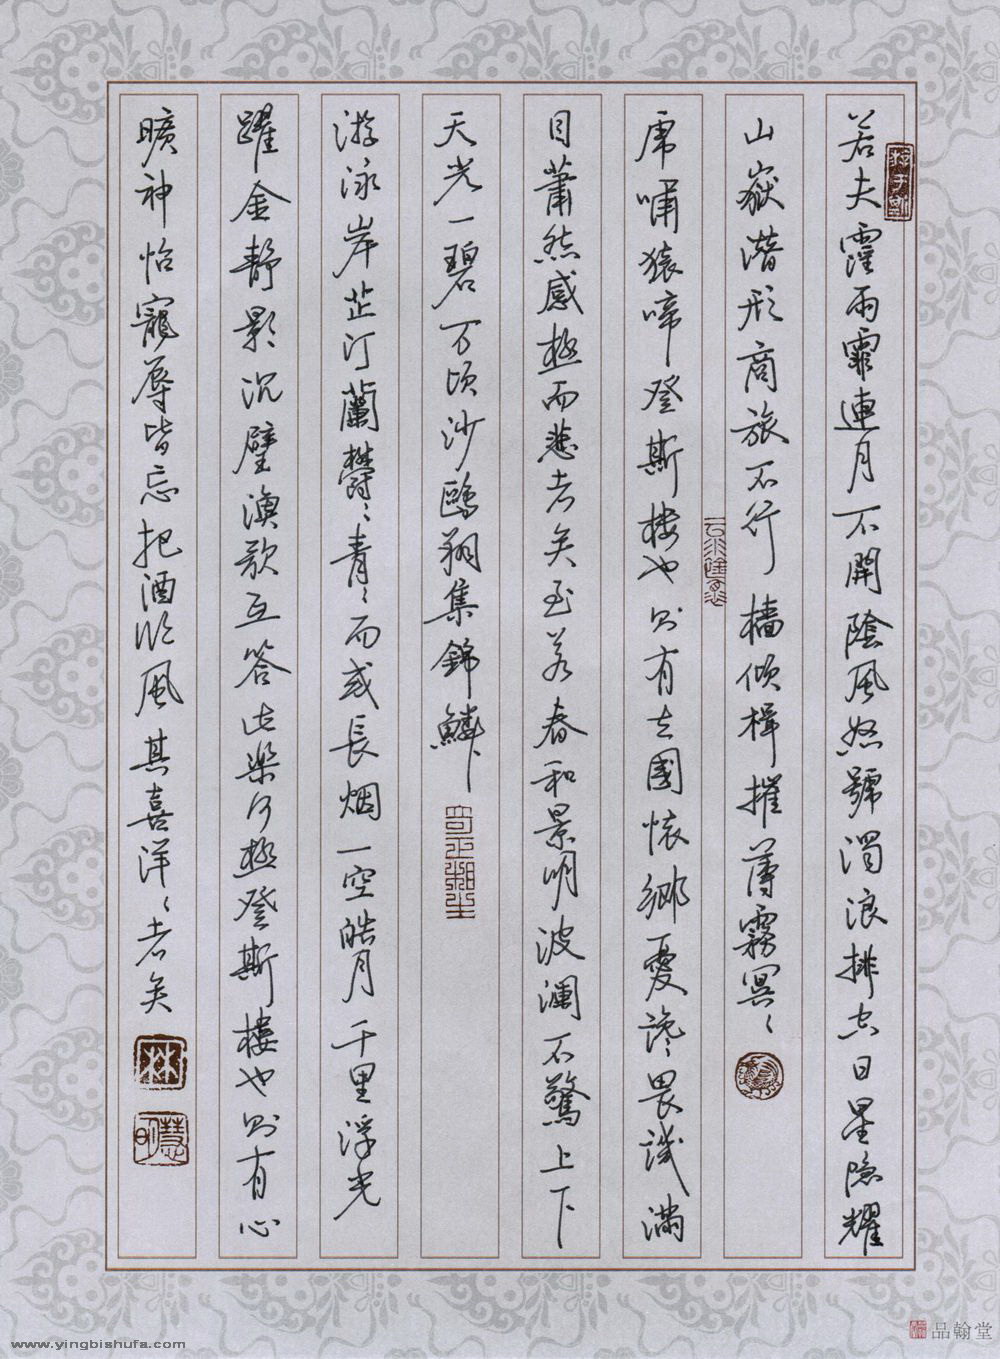 若夫霪雨霏連月不開陰風怒號濁浪排空日星隱耀
山嶽潛形商旅不行檣傾楫摧薄霧冥〻
虎嘯猿啼登斯樓也則有去國懷鄉憂讒畏譏滿
目蕭然感極而悲者矣至若春和景明波瀾不驚上下
天光一碧万頃沙鷗翔集錦鱗
奇正相生
游泳岸芷汀蘭鬱〻青〻而或長烟一空皓月千里浮光
躍金靜影沉璧漁歌互答此樂何極登斯樓也則有心
曠神怡寵辱皆忘把酒臨風其喜洋〻者矣
林
慧明
www.yingbishufa.com
品翰堂